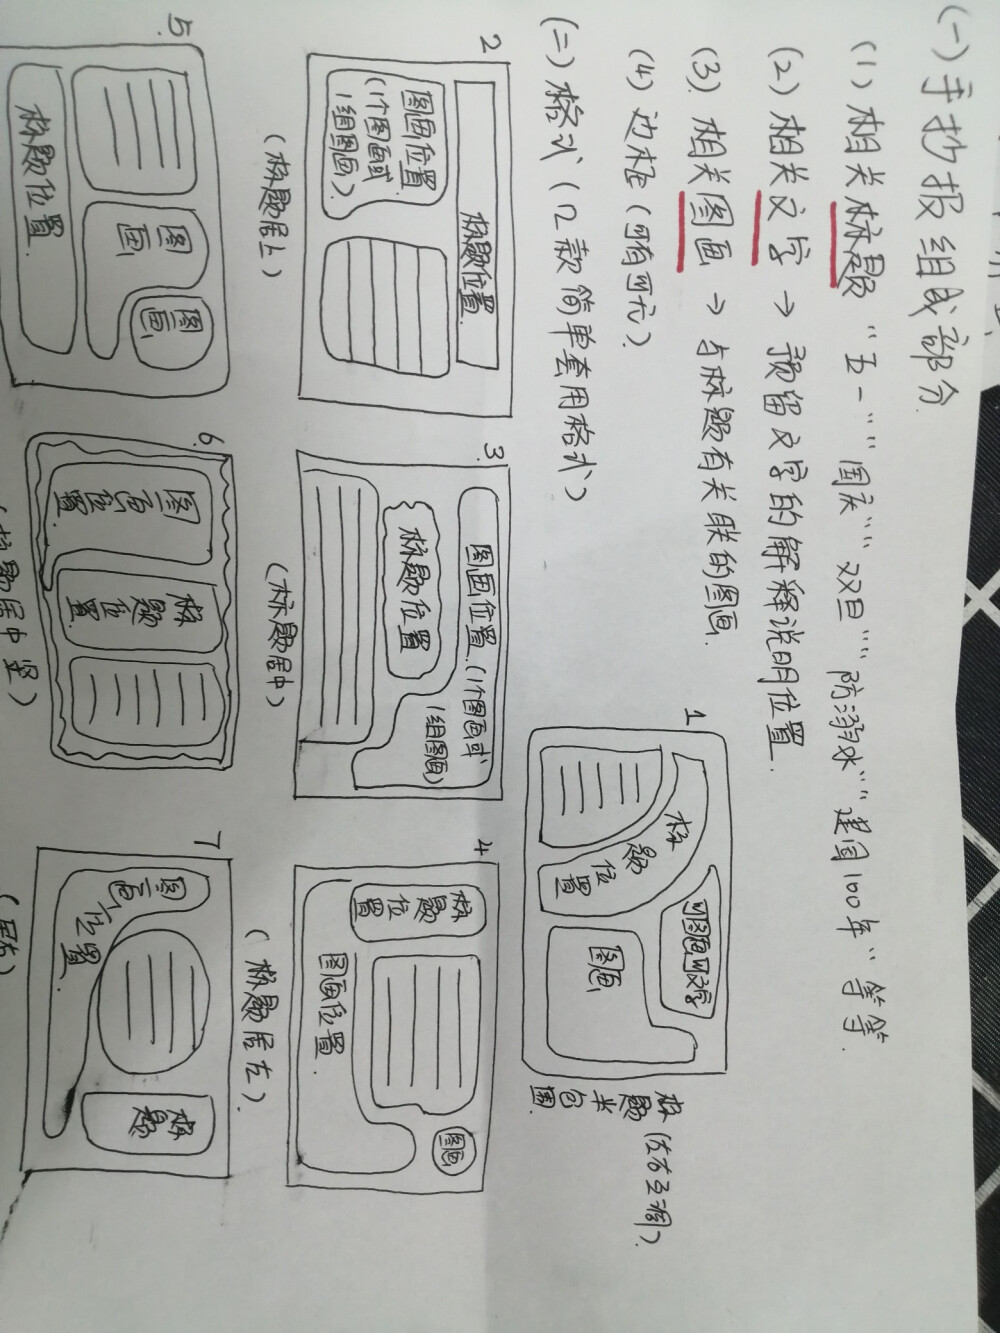 (一)手抄报组成部分.
(1)相关标题 "五一""国庆""双旦""防溺水""建国100年"等等.
(2)相关文字→预留文字的解释说明位置.
(3).相关图画→与标题有关联的图画.
(4)边框(可有可无).
(二)格式(12款简单套用格式)
1
标题位置
可图画可文字
图画
标题半包围
(左右互调).
2
标题位置.
图画位置
(1个图画或
1组图画).
(标题居上)
3.
图画位置.(1个图画或
1组图画)
标题位置
(标题居中)
4
标题位置
图画位置.
图画
(标题居左).
5.
图画
图画
标题位置.
6.
图画位置.
标题位置.
(标题居中竖)
7
图画位置
标题